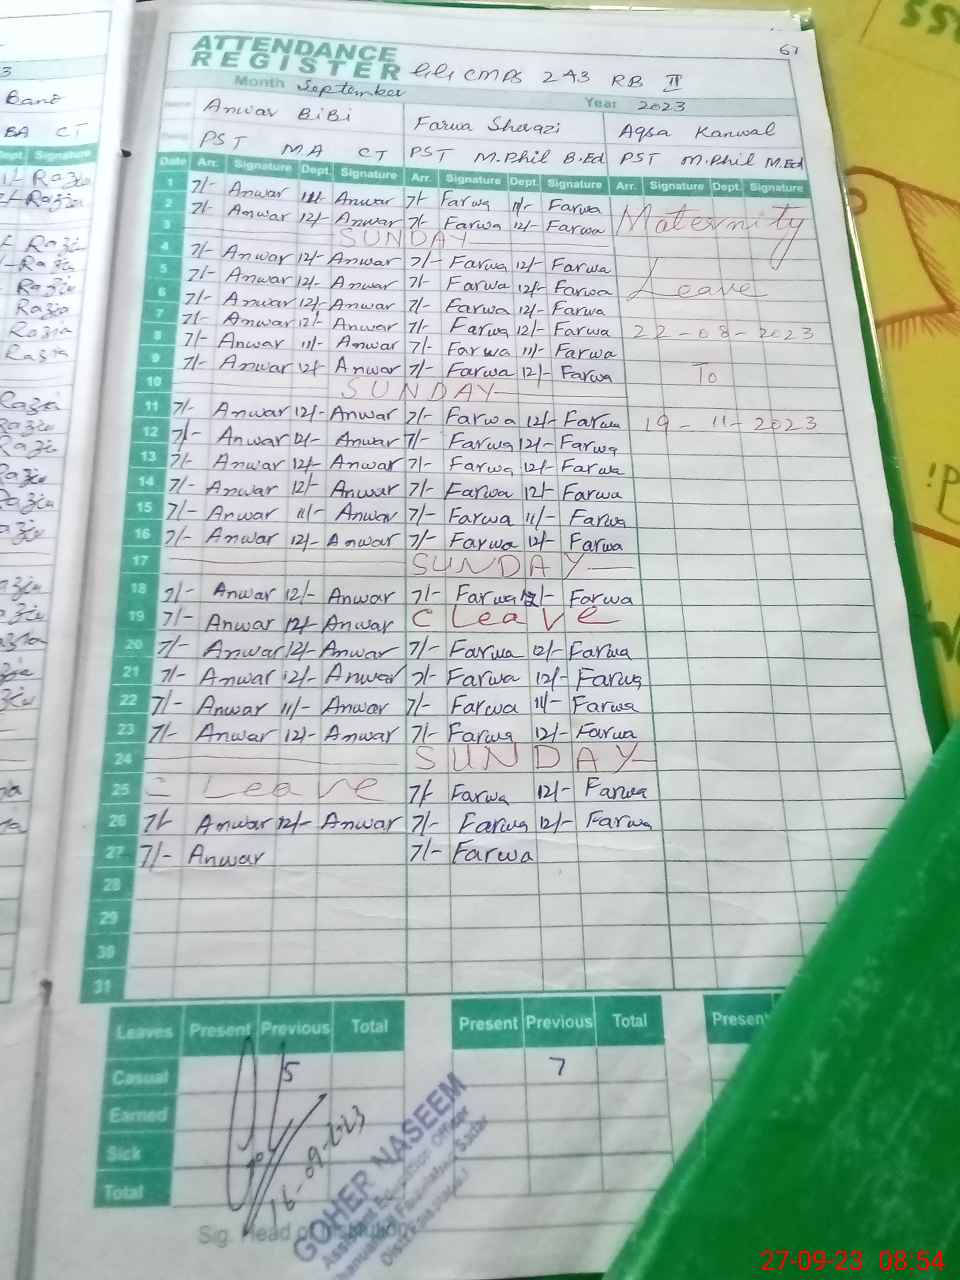 ATTENDANCE
REGISTER CMPS 243 RB II
67
Month September Year 2023
Name Anwar BiBi Farwa Sherazi Aqsa Kanwal
PST MA CT PST M.Phil B.Ed PST M.Phil M.Ed
Date Arr. Signature Dept. Signature Arr. Signature Dept. Signature Arr. Signature Dept. Signature
1 7/- Anwar 11/- Anwar 7/- Farwa 11/- Farwa
2 7/- Anwar 12/- Anwar 7/- Farwa 12/- Farwa Maternity
3 SUNDAY
4 7/- Anwar 12/- Anwar 7/- Farwa 12/- Farwa
5 7/- Anwar 12/- Anwar 7/- Farwa 12/- Farwa Leave
6 7/- Anwar 12/- Anwar 7/- Farwa 12/- Farwa
7 7/- Anwar 12/- Anwar 7/- Farwa 12/- Farwa 22-08-2023
8 7/- Anwar 11/- Anwar 7/- Farwa 11/- Farwa
9 7/- Anwar 12/- Anwar 7/- Farwa 12/- Farwa To
10 SUNDAY
11 7/- Anwar 12/- Anwar 7/- Farwa 12/- Farwa 19-11-2023
12 7/- Anwar 12/- Anwar 7/- Farwa 12/- Farwa
13 7/- Anwar 12/- Anwar 7/- Farwa 12/- Farwa
14 7/- Anwar 12/- Anwar 7/- Farwa 12/- Farwa
15 7/- Anwar 11/- Anwar 7/- Farwa 11/- Farwa
16 7/- Anwar 12/- Anwar 7/- Farwa 12/- Farwa
17 SUNDAY
18 7/- Anwar 12/- Anwar 7/- Farwa 12/- Farwa
19 7/- Anwar 12/- Anwar C Leave
20 7/- Anwar 12/- Anwar 7/- Farwa 12/- Farwa
21 7/- Anwar 12/- Anwar 7/- Farwa 12/- Farwa
22 7/- Anwar 11/- Anwar 7/- Farwa 11/- Farwa
23 7/- Anwar 12/- Anwar 7/- Farwa 12/- Farwa
24 SUNDAY
25 C Leave 7/- Farwa 12/- Farwa
26 7/- Anwar 12/- Anwar 7/- Farwa 12/- Farwa
27 7/- Anwar 7/- Farwa
28
29
30
31
Leaves Present Previous Total Present Previous Total Present
Casual 5 7
Earned
Sick
Total
16-09-2023
Sig. Head of
GOHER NASEEM
Assistant Education Officer
27-09-23 08:54